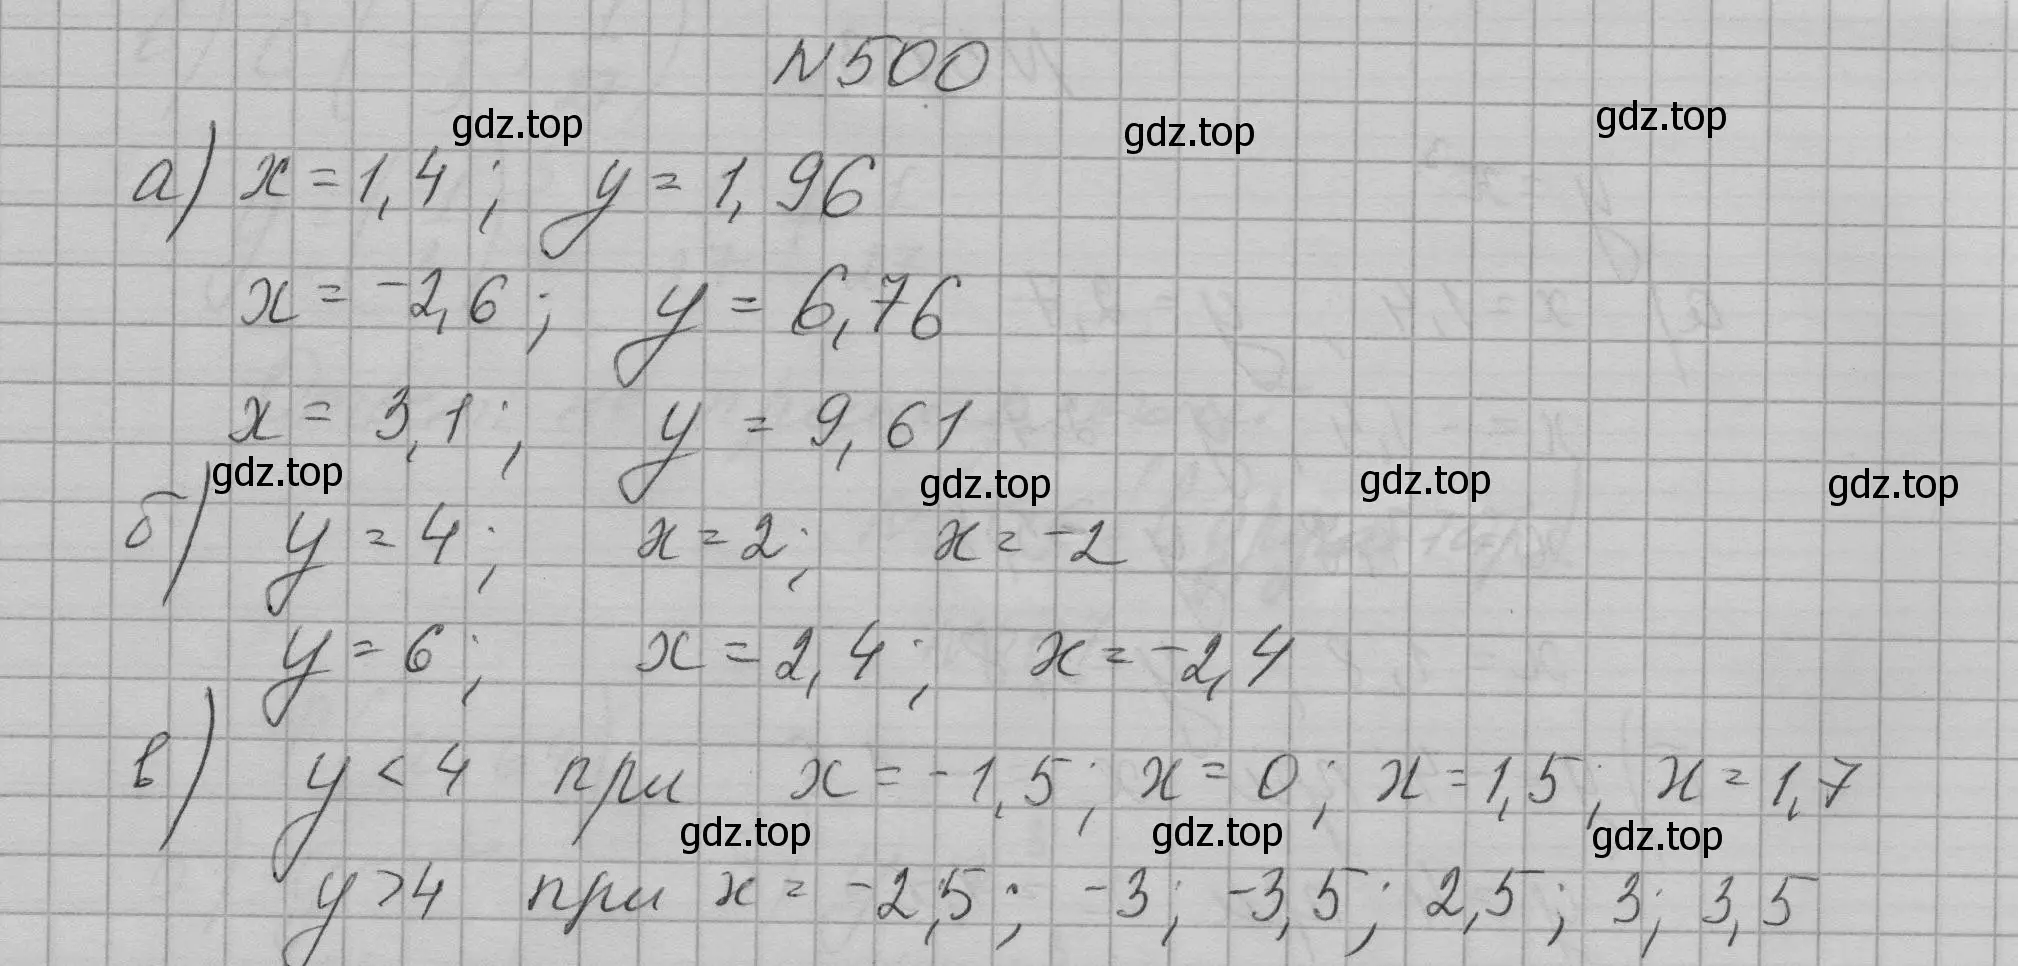 N500
gdz.top gdz.top gdz.top
а) x = 1,4 ; y = 1,96
x = -2,6 ; y = 6,76
x = 3,1 ; y = 9,61
gdz.top gdz.top gdz.top gdz.top
б) y = 4; x = 2; x = -2
y = 6; x = 2,4; x = -2,4
в) y < 4 при x = -1,5; x = 0; x = 1,5; x = 1,7
gdz.top gdz.top gdz.top
y > 4 при x = -2,5; -3; -3,5; 2,5; 3; 3,5